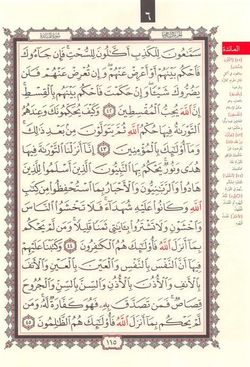 ٦
المائدة
سَمَّٰعُونَ لِلْكَذِبِ أَكَّٰلُونَ لِلسُّحْتِ فَإِن جَآءُوكَ
فَٱحْكُم بَيْنَهُمْ أَوْ أَعْرِضْ عَنْهُمْ وَإِن تُعْرِضْ عَنْهُمْ فَلَن
يَضُرُّوكَ شَيْـًٔا وَإِنْ حَكَمْتَ فَٱحْكُم بَيْنَهُم بِٱلْقِسْطِ
إِنَّ ٱللَّهَ يُحِبُّ ٱلْمُقْسِطِينَ ٤٢ وَكَيْفَ يُحَكِّمُونَكَ وَعِندَهُمُ
ٱلتَّوْرَىٰةُ فِيهَا حُكْمُ ٱللَّهِ ثُمَّ يَتَوَلَّوْنَ مِنۢ بَعْدِ ذَٰلِكَ
وَمَآ أُو۟لَٰٓئِكَ بِٱلْمُؤْمِنِينَ ٤٣ إِنَّآ أَنزَلْنَا ٱلتَّوْرَىٰةَ فِيهَا
هُدًى وَنُورٌ يَحْكُمُ بِهَا ٱلنَّبِيُّونَ ٱلَّذِينَ أَسْلَمُوا۟ لِلَّذِينَ
هَادُوا۟ وَٱلرَّبَّٰنِيُّونَ وَٱلْأَحْبَارُ بِمَا ٱسْتُحْفِظُوا۟ مِن كِتَٰبِ
ٱللَّهِ وَكَانُوا۟ عَلَيْهِ شُهَدَآءَ فَلَا تَخْشَوُا۟ ٱلنَّاسَ
وَٱخْشَوْنِ وَلَا تَشْتَرُوا۟ بِـَٔايَٰتِى ثَمَنًا قَلِيلًا وَمَن لَّمْ يَحْكُم
بِمَآ أَنزَلَ ٱللَّهُ فَأُو۟لَٰٓئِكَ هُمُ ٱلْكَٰفِرُونَ ٤٤ وَكَتَبْنَا عَلَيْهِمْ
فِيهَآ أَنَّ ٱلنَّفْسَ بِٱلنَّفْسِ وَٱلْعَيْنَ بِٱلْعَيْنِ وَٱلْأَنفَ
بِٱلْأَنفِ وَٱلْأُذُنَ بِٱلْأُذُنِ وَٱلسِّنَّ بِٱلسِّنِّ وَٱلْجُرُوحَ
قِصَاصٌ فَمَن تَصَدَّقَ بِهِۦ فَهُوَ كَفَّارَةٌ لَّهُۥ وَمَن
لَّمْ يَحْكُم بِمَآ أَنزَلَ ٱللَّهُ فَأُو۟لَٰٓئِكَ هُمُ ٱلظَّٰلِمُونَ ٤٥
١١٥